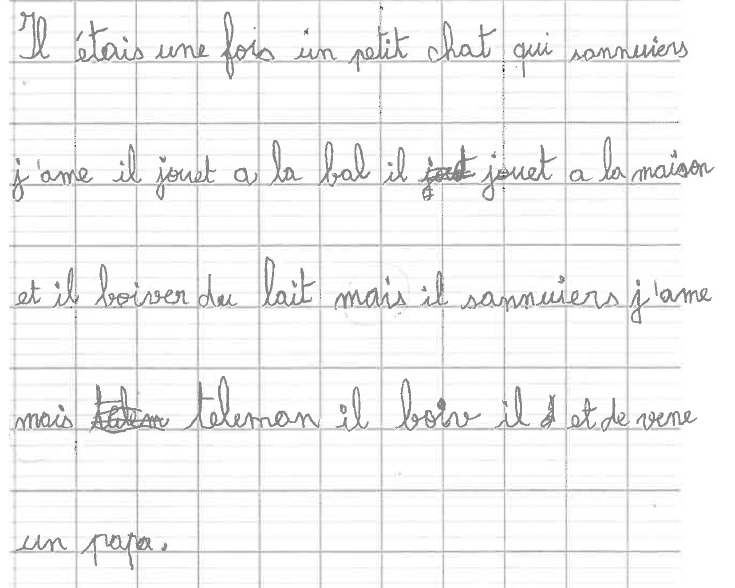 Il étais une fois un petit chat qui sannuiers
j'ame il jouet a la bal il jouet a la maison
et il boiver du lait mais il sannuiers j'ame
mais teleman il boiv il et de vene
un papa.